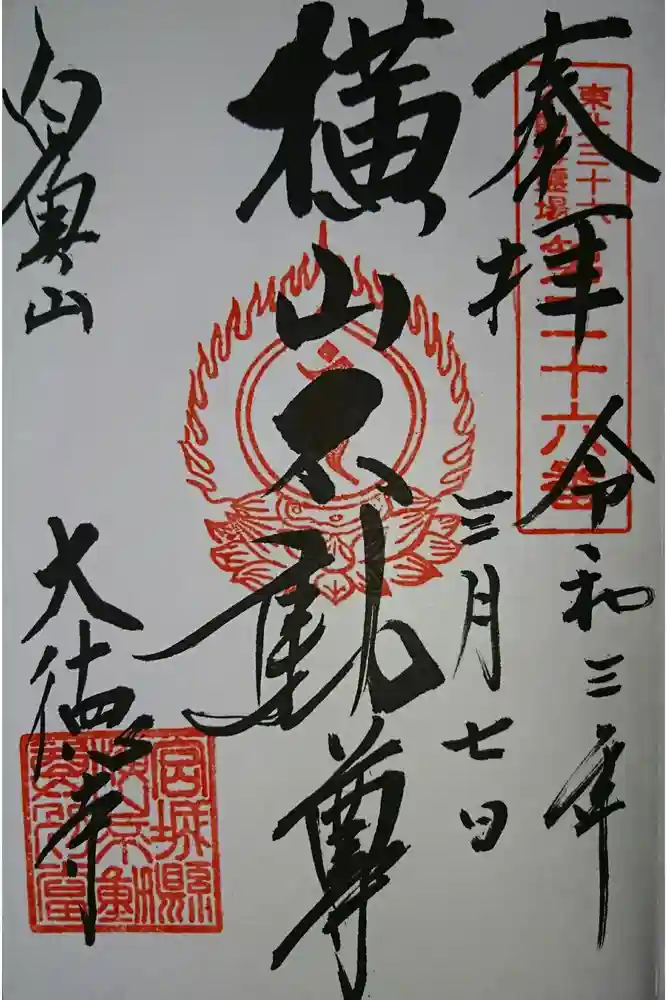 東北三十六
不動尊霊場
第二十六番
奉拝
令和三年
三月七日
横山不動尊
白魚山
大徳寺
宮城縣
横山不動